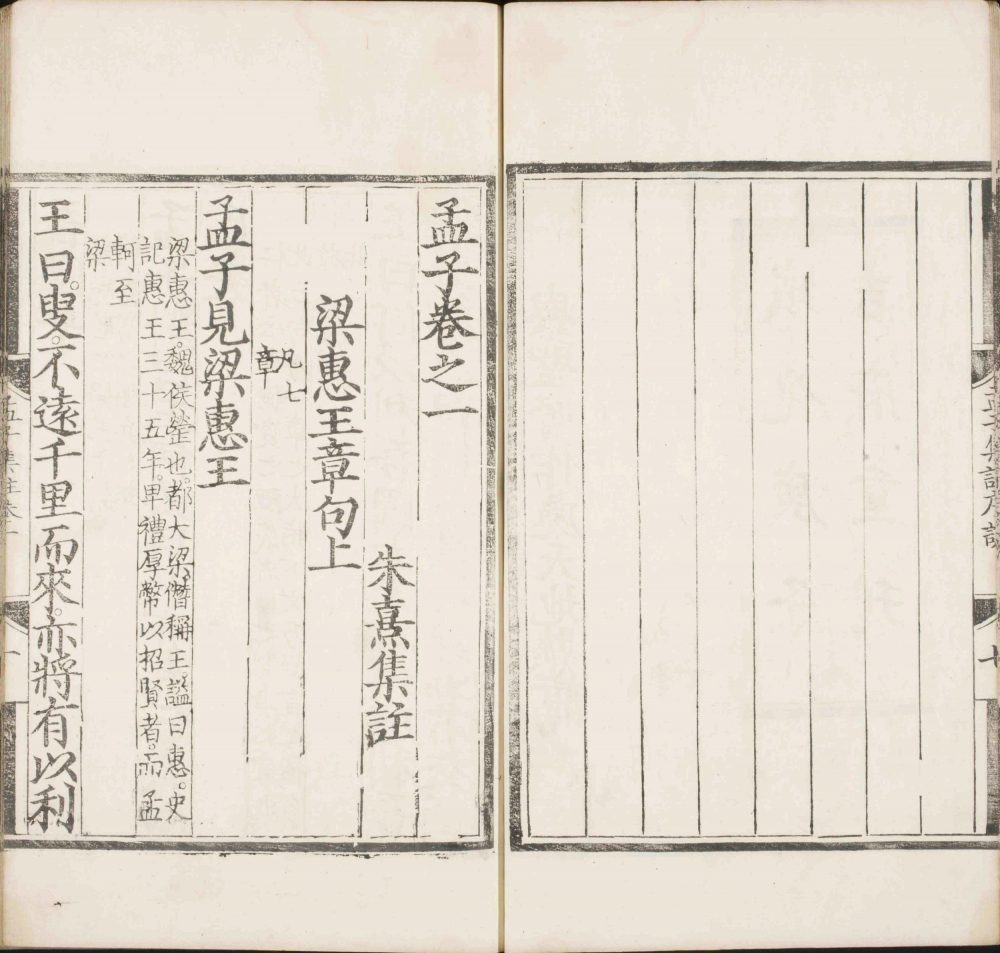 孟子集註序說
七
孟子卷之一
朱熹集註
梁惠王章句上
凡七
章
孟子見梁惠王
梁惠王。魏侯罃也。都大梁。僭稱王。謚曰惠。史
記惠王三十五年。卑禮厚幣以招賢者。而孟
軻至
梁
王曰。叟。不遠千里而來。亦將有以利
孟子集註卷一
一